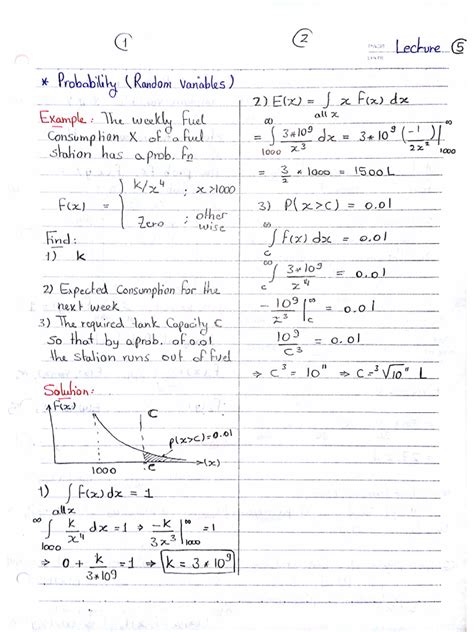 ① ② Lecture ⑤
* Probability (Random variables)
Example: The weekly fuel
Consumption X of a fuel
station has a prob. fn
f(x) = { k/x⁴ ; x>1000
Zero ; other wise
Find:
1) k
2) Expected Consumption for the
next week
3) The required tank Capacity C
so that by a prob. of 0.01
the station runs out of fuel
Solution:
f(x)
C
P(x>c)=0.01
1000 c (x)
1) ∫ f(x) dx = 1
all x
∞∫1000 k/x⁴ dx = 1 ⇒ -k/3x³ |∞1000 = 1
⇒ 0 + k/3*10⁹ = 1 ⇒ k = 3*10⁹
2) E(x) = ∫ x f(x) dx
all x
= ∞∫1000 3*10⁹/x³ dx = 3*10⁹ (-1/2x²)|∞1000
= 3/2 * 1000 = 1500 L
3) P(x>c) = 0.01
∞∫c f(x) dx = 0.01
∞∫c 3*10⁹/x⁴ = 0.01
- 10⁹/x³ |∞c = 0.01
10⁹/c³ = 0.01
⇒ c³ = 10¹¹ ⇒ c = ³√10¹¹ L